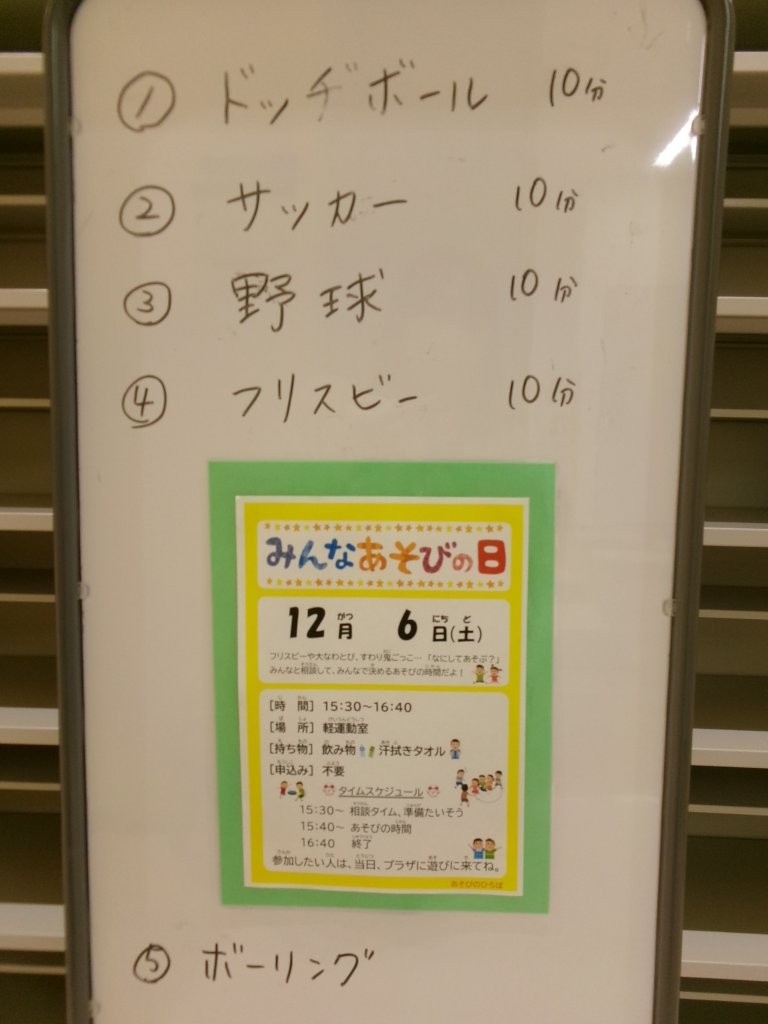 ① ドッヂボール 10分
② サッカー 10分
③ 野球 10分
④ フリスビー 10分
みんなあそびの日
12月 6日(土)
フリスビーや大なわとび、すわり鬼ごっこ…「なにしてあそぶ?」
みんなと相談して、みんなで決めるあそびの時間だよ!
[時 間] 15:30~16:40
[場 所] 軽運動室
[持ち物] 飲み物 汗拭きタオル
[申込み] 不要
タイムスケジュール
15:30~ 相談タイム、準備たいそう
15:40~ あそびの時間
16:40 終了
参加したい人は、当日、プラザに遊びに来てね。
あそびのひろば
⑤ ボーリング